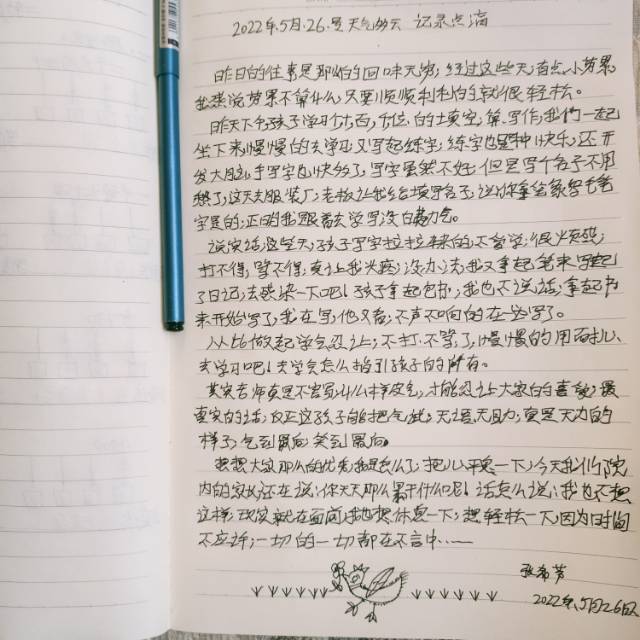 2022年.5月.26.号 天气多云 记录点滴
昨日的往事是那怕的回味无穷;经过这些天,有点小劳累
我来说劳累不算什么,只要顺顺利利的就很轻松。
昨天下午孩子学习个十百,千位的填空,算写作,我们一起
坐下来,慢慢的去学习,又写起练字;练字也是种快乐,还开
发大脑,手写字也快多了,写字虽然不好,但是写个名字不用
愁了,这天去服装厂;老板让我给填写名字;说你拿会家写毛笔
字是的;正的我跟着去学写没白费力气。
说实话,这些天,孩子写字拉拉来的,不爱学;很烦燥;
打不得,骂不得,真让我头疼;没办法,我又拿起笔来写起
了日记,去感染一下吧!孩子拿起包书,我也不说话;拿起书
来开始写了,我在写,他又看,不声不响的在一边写了。
从此做起学会忍让,不打.不骂了,慢慢的用耐心
去学习吧!去学会怎么指引孩子的所有。
其实老师真是不容易,什么样脾气,才能忍让大家的喜欢;最
真实的话,反正这孩子能把气.死;无语,无助,真是无力的
样子,气到最后,笑到最后。
想想大家那么的优秀,我是怎么了,把心平复一下,今天我们院
内的家长还在说:你天天那么累干什么呢!话怎么说,我也不想
这样,现实就在面前,我也想休息一下,想轻松一下,因为时间
不应许;一切的一切都在不言中……
2022年.5月26日